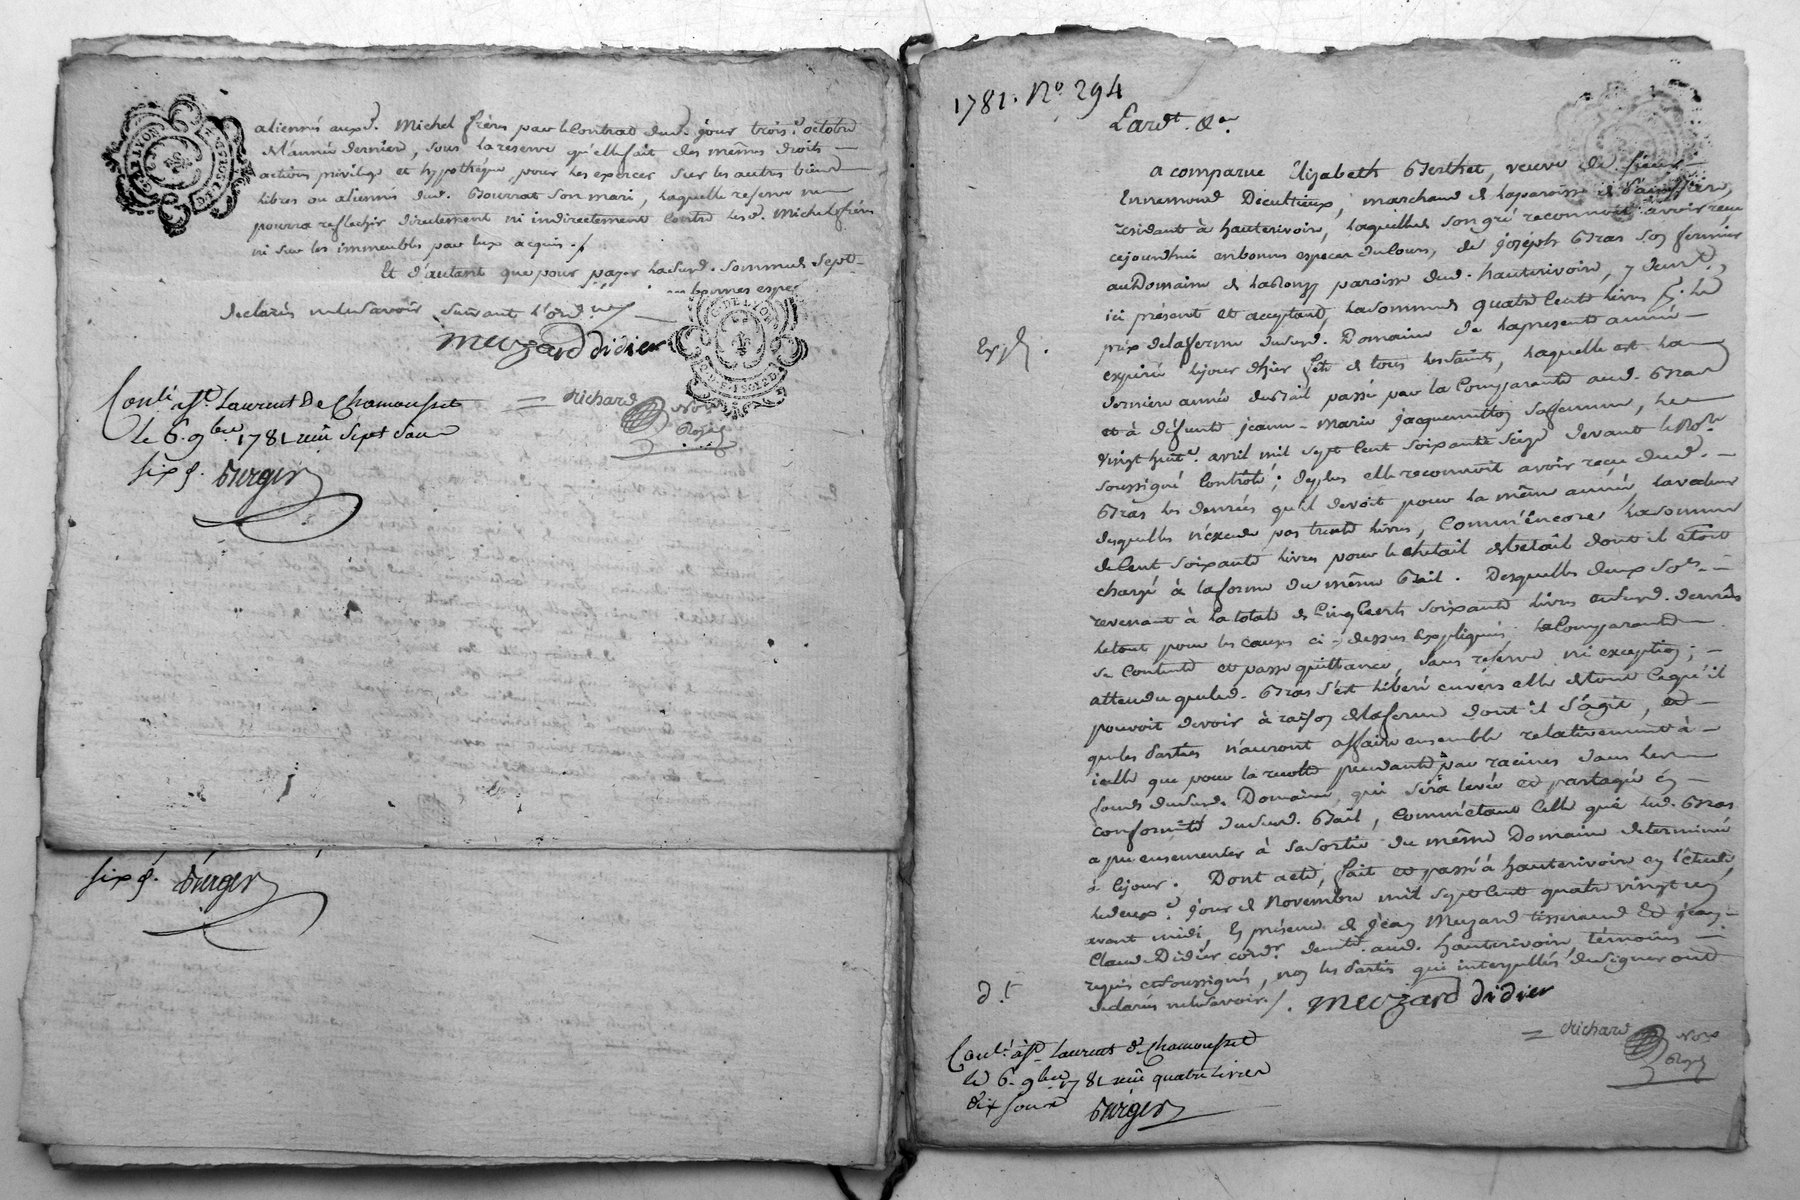 aliennés auxd. Michel frères par le Contrat dud. jour trois.e octobre
de l'année dernier, sous la reserve qu'elle fait des mêmes droits
actions privilege et hypothéque pour les exercer sur les autres biens
libres ou aliennés dud. son mari, laquelle reserve ne
pourra reflechir directement ni indirectement contre lesd. Michel frères
ni sur les immeubles par eux acquis ./.
Et d'autant que pour payer lasusd. somme de sept
declarés ne le savoir suivant l'ord
meuzard didier
= Richard Not. Royal
Conlé à St. Laurent De Chamousset
le 6. 9bre 1781 reçu sept sous
six d. Burger
six d. Burger
1781. No. 294
Pardt. &a
a comparue Elizabeth Berthet, veuve de sieur
Ennemond Decultieux, marchand de la paroisse de
residant à hauterivoire, laquelle de son gré reconnoit avoir reçu
cejourd'hui en bonnes especes du Cours, de joseph Bras son fermier
au Domaine de paroisse dud. hauterivoire, y demt.,
ici présent et acceptant, la somme de quatre Cents livres pr. le
prix de la ferme dususd. Domaine de la presente année
Expd.
expirée le jour d'hier fête de tous les saints, laquelle est la
derniere année du Bail passé par la Comparante aud. Bras
et à défunte jeanne-Marie jacquemetton sa femme, le
vingt huite. avril mil sept Cent soixante seize devant le Not.re
soussigné Controlé; de plus elle reconnoit avoir reçu dud.
Bras les denrées qu'il devoit pour la même année, la valeur
desquelles n'excede pas trente livres, Comm'encore la somme
de Cent soixante livres pour le cheptail de betail dont il étoit
chargé à la forme du même Bail. Desquelles deux so.es
revenant à la totale de Cinq Cents soixante livres et susd. denrées
le tout pour les causes ci-dessus expliquées la Comparante
se Contente et passe quittance, sans reserve ni exception;
attendu que led. Bras s'est liberé envers elle de tout Ce qu'il
pouvoit devoir à raison de la ferme dont il s'agit, et
que les Parties n'auront affaire ensemble relativement à
icelle que pour la recolte pendante par racines dans les
fonds dususd. Domaine, qui sera levée et partagée en
conformité dususd. Bail, comm'étant Celle que led. Bras
a pu ensementer à sa sortie du même Domaine determinée
à Cejour. Dont acte, fait et passé à hauterivoire en l'étude,
le deuxe. jour de Novembre mil sept Cent quatre vingt un
avant midi, En présence de jean Meuzard tisserand Et jean
Claude Didier cordr. demts. aud. hauterivoire, témoins
requis et soussignés, non les Parties qui interpellées de signer ont
declarés ne le savoir ./. meuzard didier
d.t
= Richard Not. Royal
Conlé à St. Laurent de Chamousset
le 6. 9bre 1781 reçu quatre livres
dix sous Burger